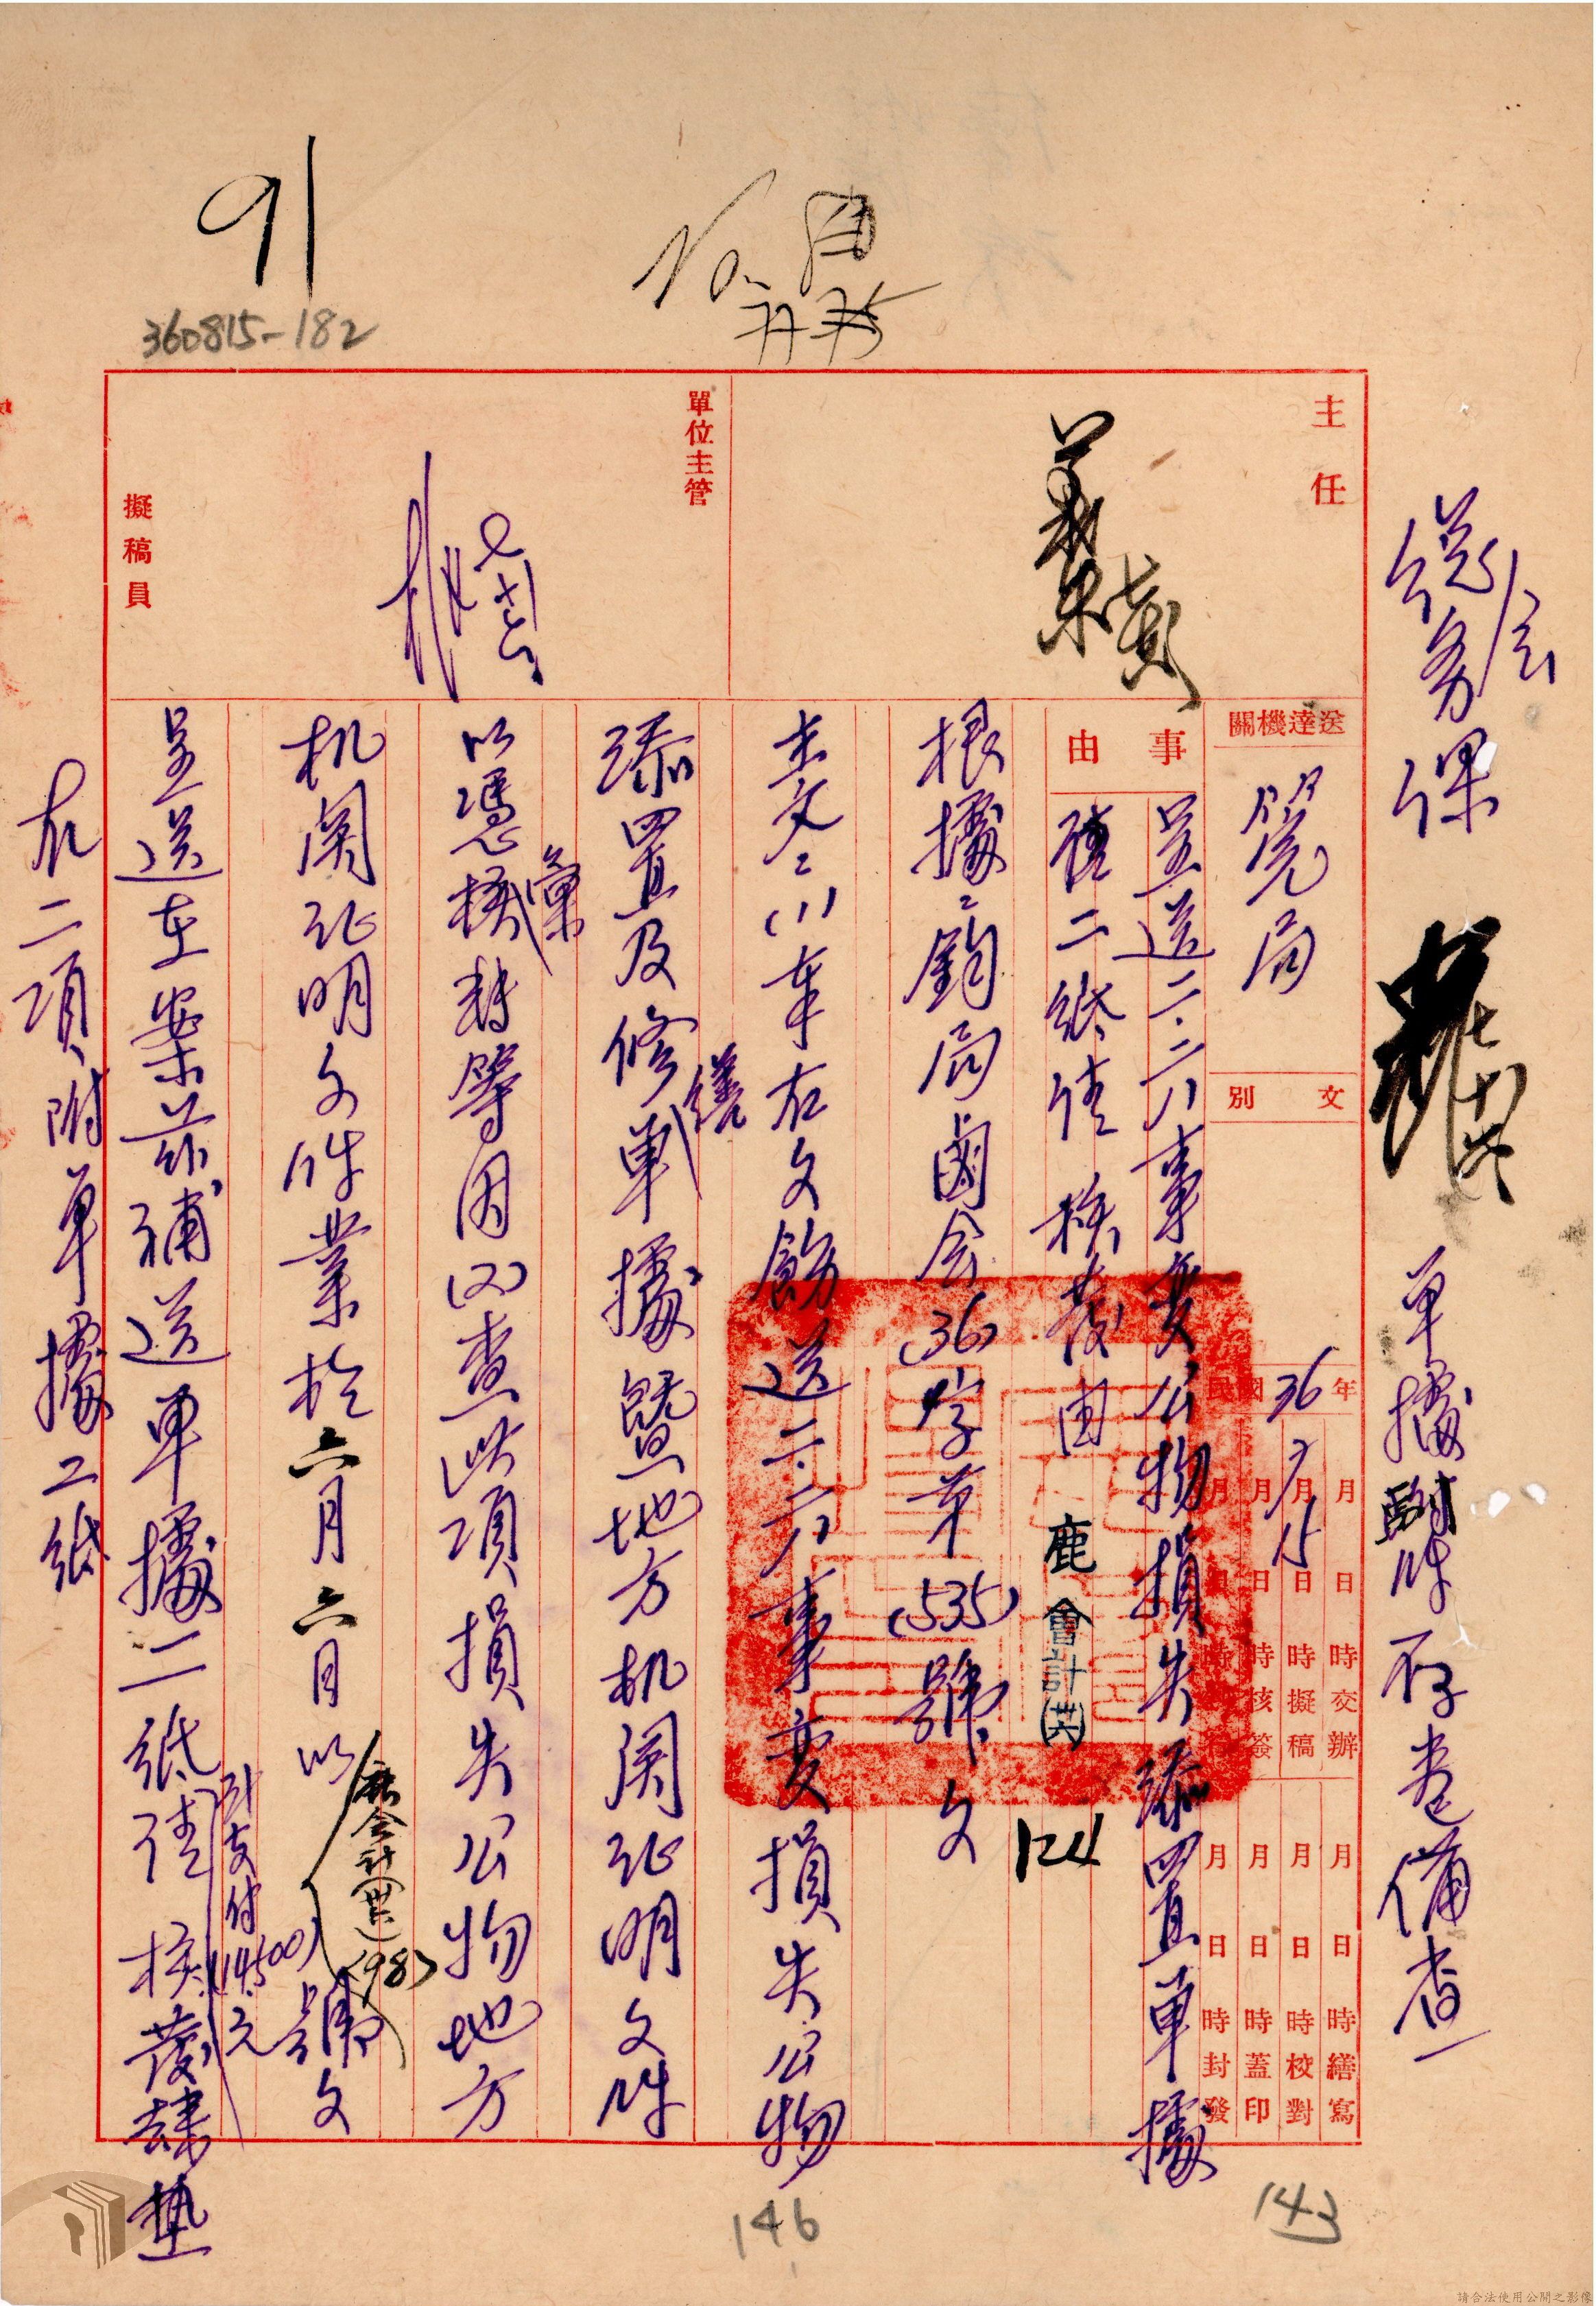 總務課 單據附件存卷備查
會
主任
送達機關
管局
文別
民國36年7月15日
月 日 時交辦
月 日 時擬稿
月 日 時核簽
月 日 時繕寫
月 日 時校對
月 日 時蓋印
月 日 時封發
事由
呈送二.二八事變公物損失添置單據
貳二紙請 核發由
鹿會計(卅六)
124
根據鈞局鹵会(36)字第(535)號文
左文飭送二.二八事變損失公物
添置及修繕單據暨地方机関証明文件
以憑核彙轉等因 查此項損失公物地方
机関証明文件業於六月六日以鹿会計(卅六)(98)號文
呈送在案茲補送單據二紙計支付(14500)元請 核發歸墊
左二項附單據二紙
單位主管
擬稿員
91
360815-182
No.
146
143
請合法使用公開之影像